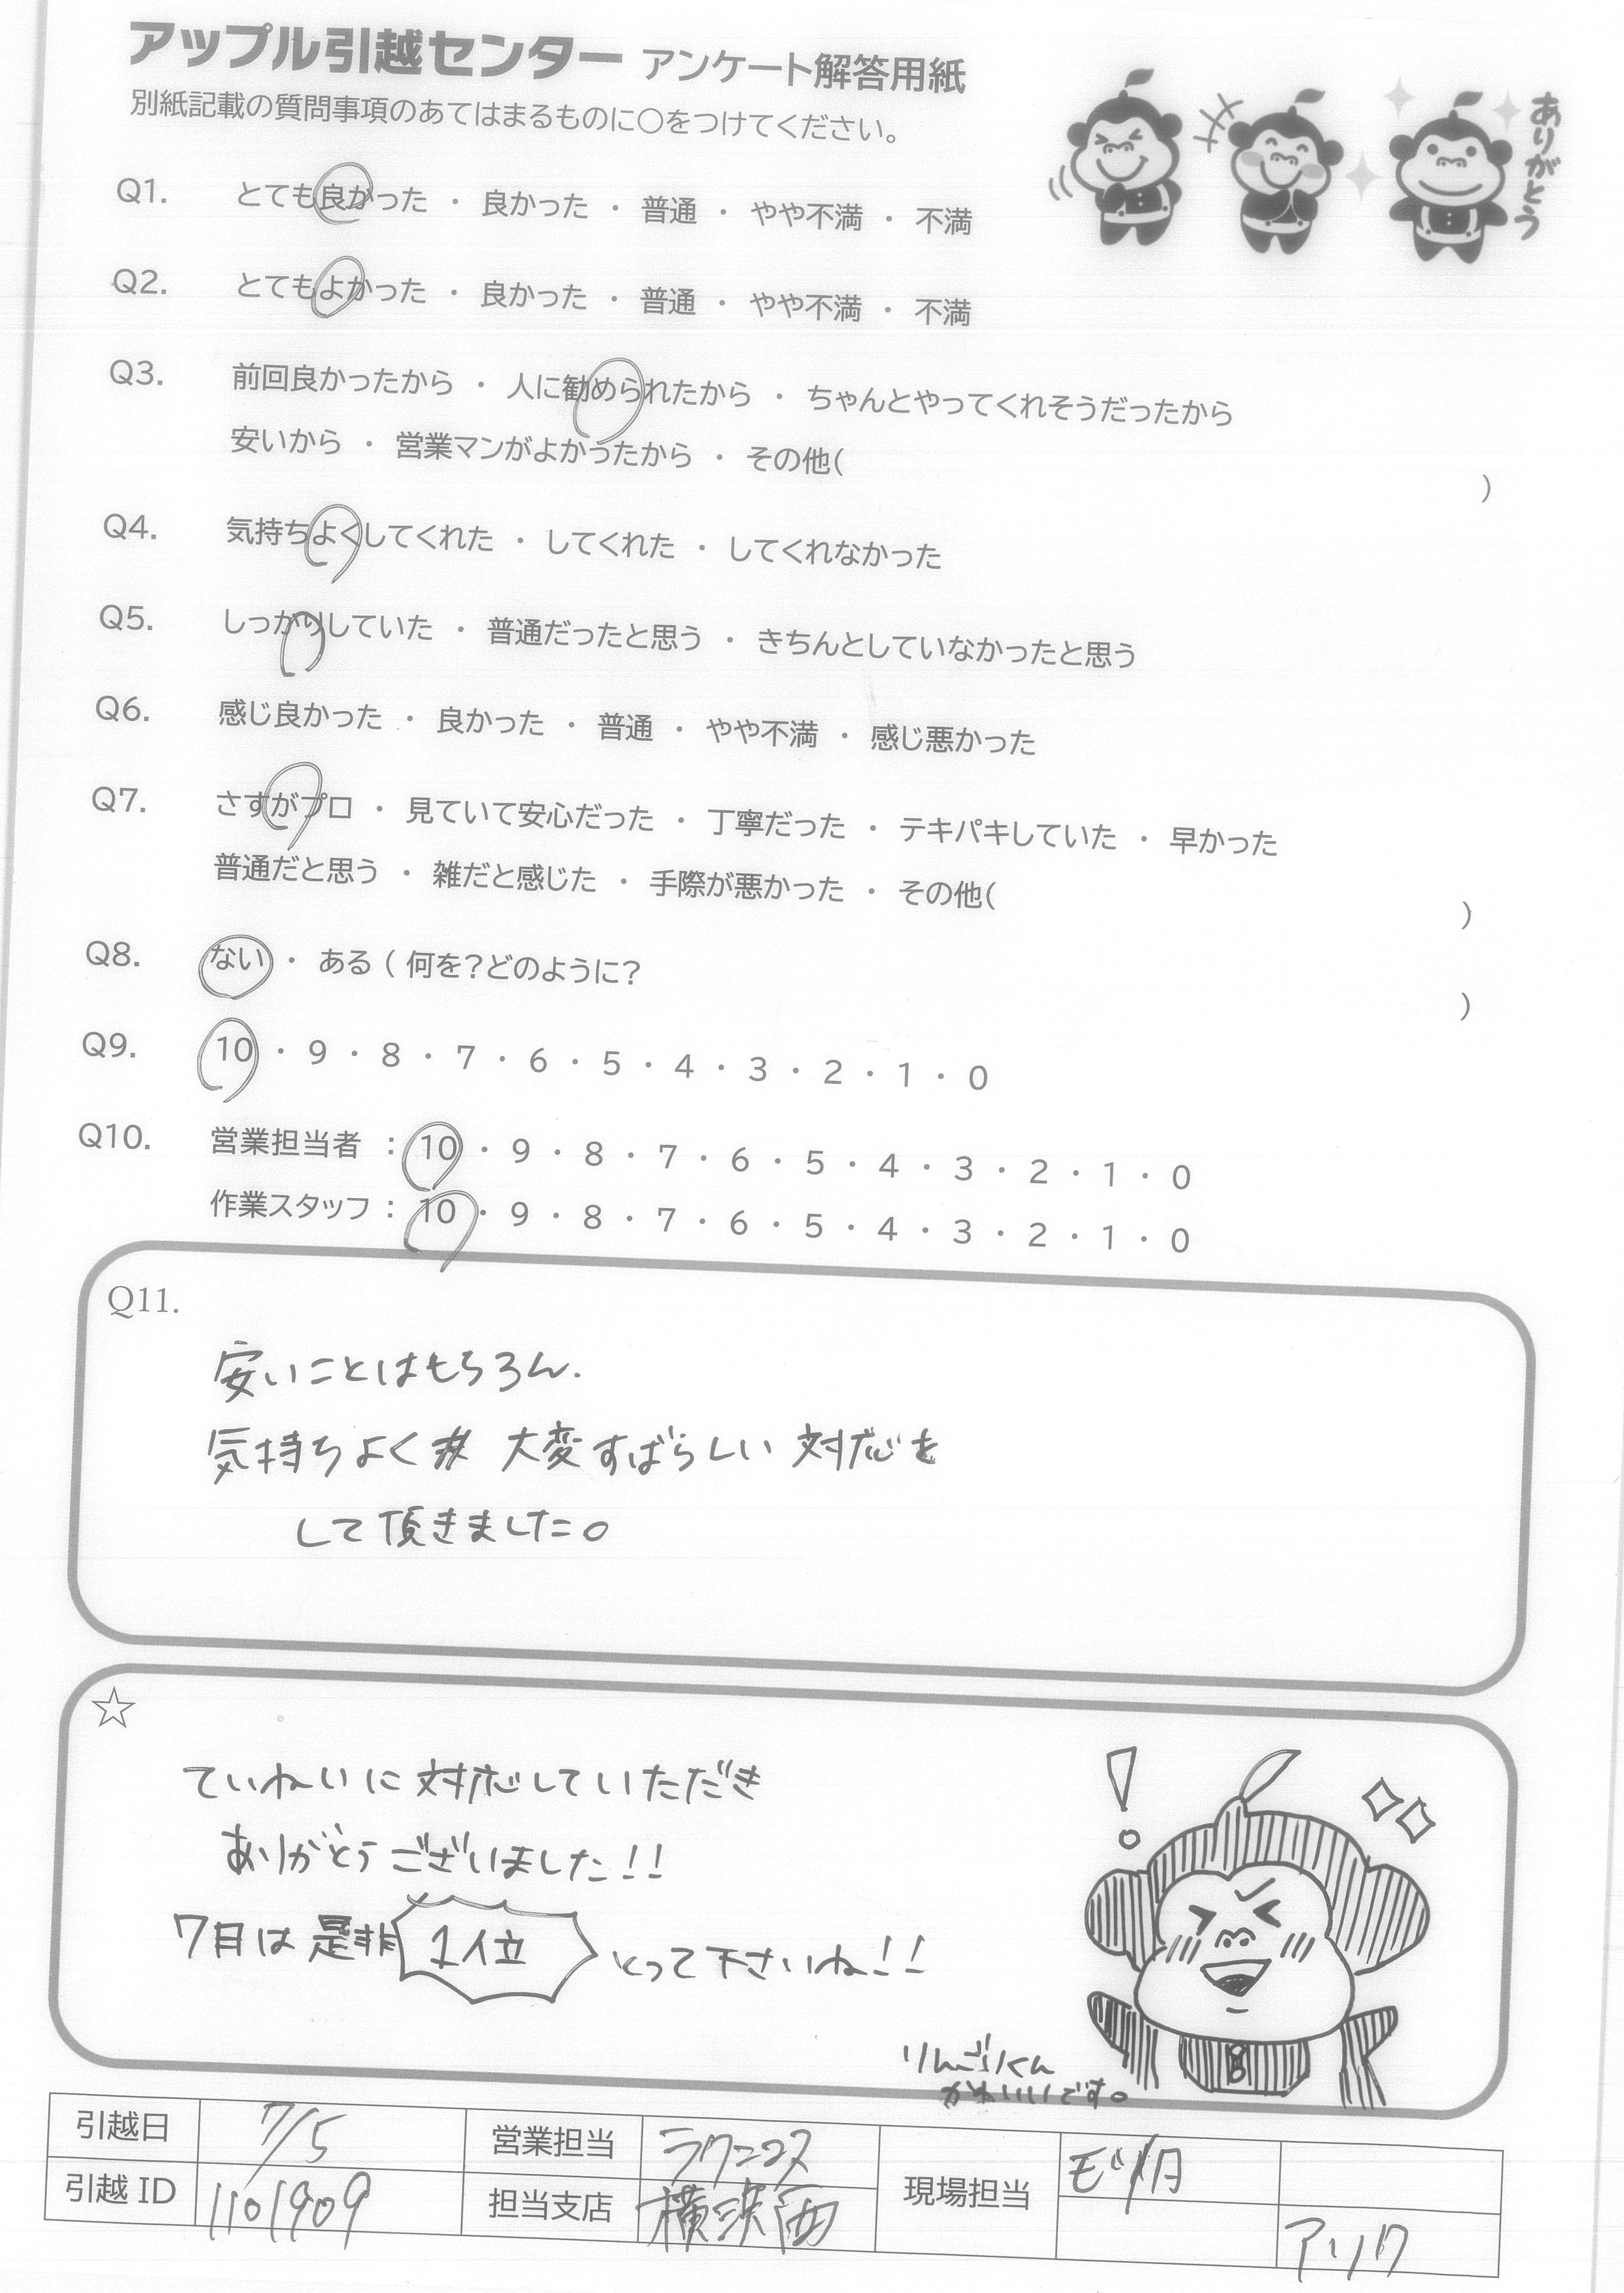 アップル引越センター アンケート解答用紙
別紙記載の質問事項のあてはまるものに〇をつけてください。
ありがとう
Q1. とても良かった ・ 良かった ・ 普通 ・ やや不満 ・ 不満
Q2. とてもよかった ・ 良かった ・ 普通 ・ やや不満 ・ 不満
Q3. 前回良かったから ・ 人に勧められたから ・ ちゃんとやってくれそうだったから
安いから ・ 営業マンがよかったから ・ その他( )
Q4. 気持ちよくしてくれた ・ してくれた ・ してくれなかった
Q5. しっかりしていた ・ 普通だったと思う ・ きちんとしていなかったと思う
Q6. 感じ良かった ・ 良かった ・ 普通 ・ やや不満 ・ 感じ悪かった
Q7. さすがプロ ・ 見ていて安心だった ・ 丁寧だった ・ テキパキしていた ・ 早かった
普通だと思う ・ 雑だと感じた ・ 手際が悪かった ・ その他( )
Q8. ない ・ ある ( 何を?どのように? )
Q9. 10 ・ 9 ・ 8 ・ 7 ・ 6 ・ 5 ・ 4 ・ 3 ・ 2 ・ 1 ・ 0
Q10. 営業担当者 : 10 ・ 9 ・ 8 ・ 7 ・ 6 ・ 5 ・ 4 ・ 3 ・ 2 ・ 1 ・ 0
作業スタッフ : 10 ・ 9 ・ 8 ・ 7 ・ 6 ・ 5 ・ 4 ・ 3 ・ 2 ・ 1 ・ 0
Q11.
安いことはもちろん.
気持ちよく 大変すばらしい 対応を
して頂きました。
☆
ていねいに対応していただき
ありがとうございました!!
7月は是非 1位 とって下さいね!!
りんごりくん
かわいいです。
引越日 7/5 営業担当 現場担当
引越ID 1101909 担当支店 横浜西